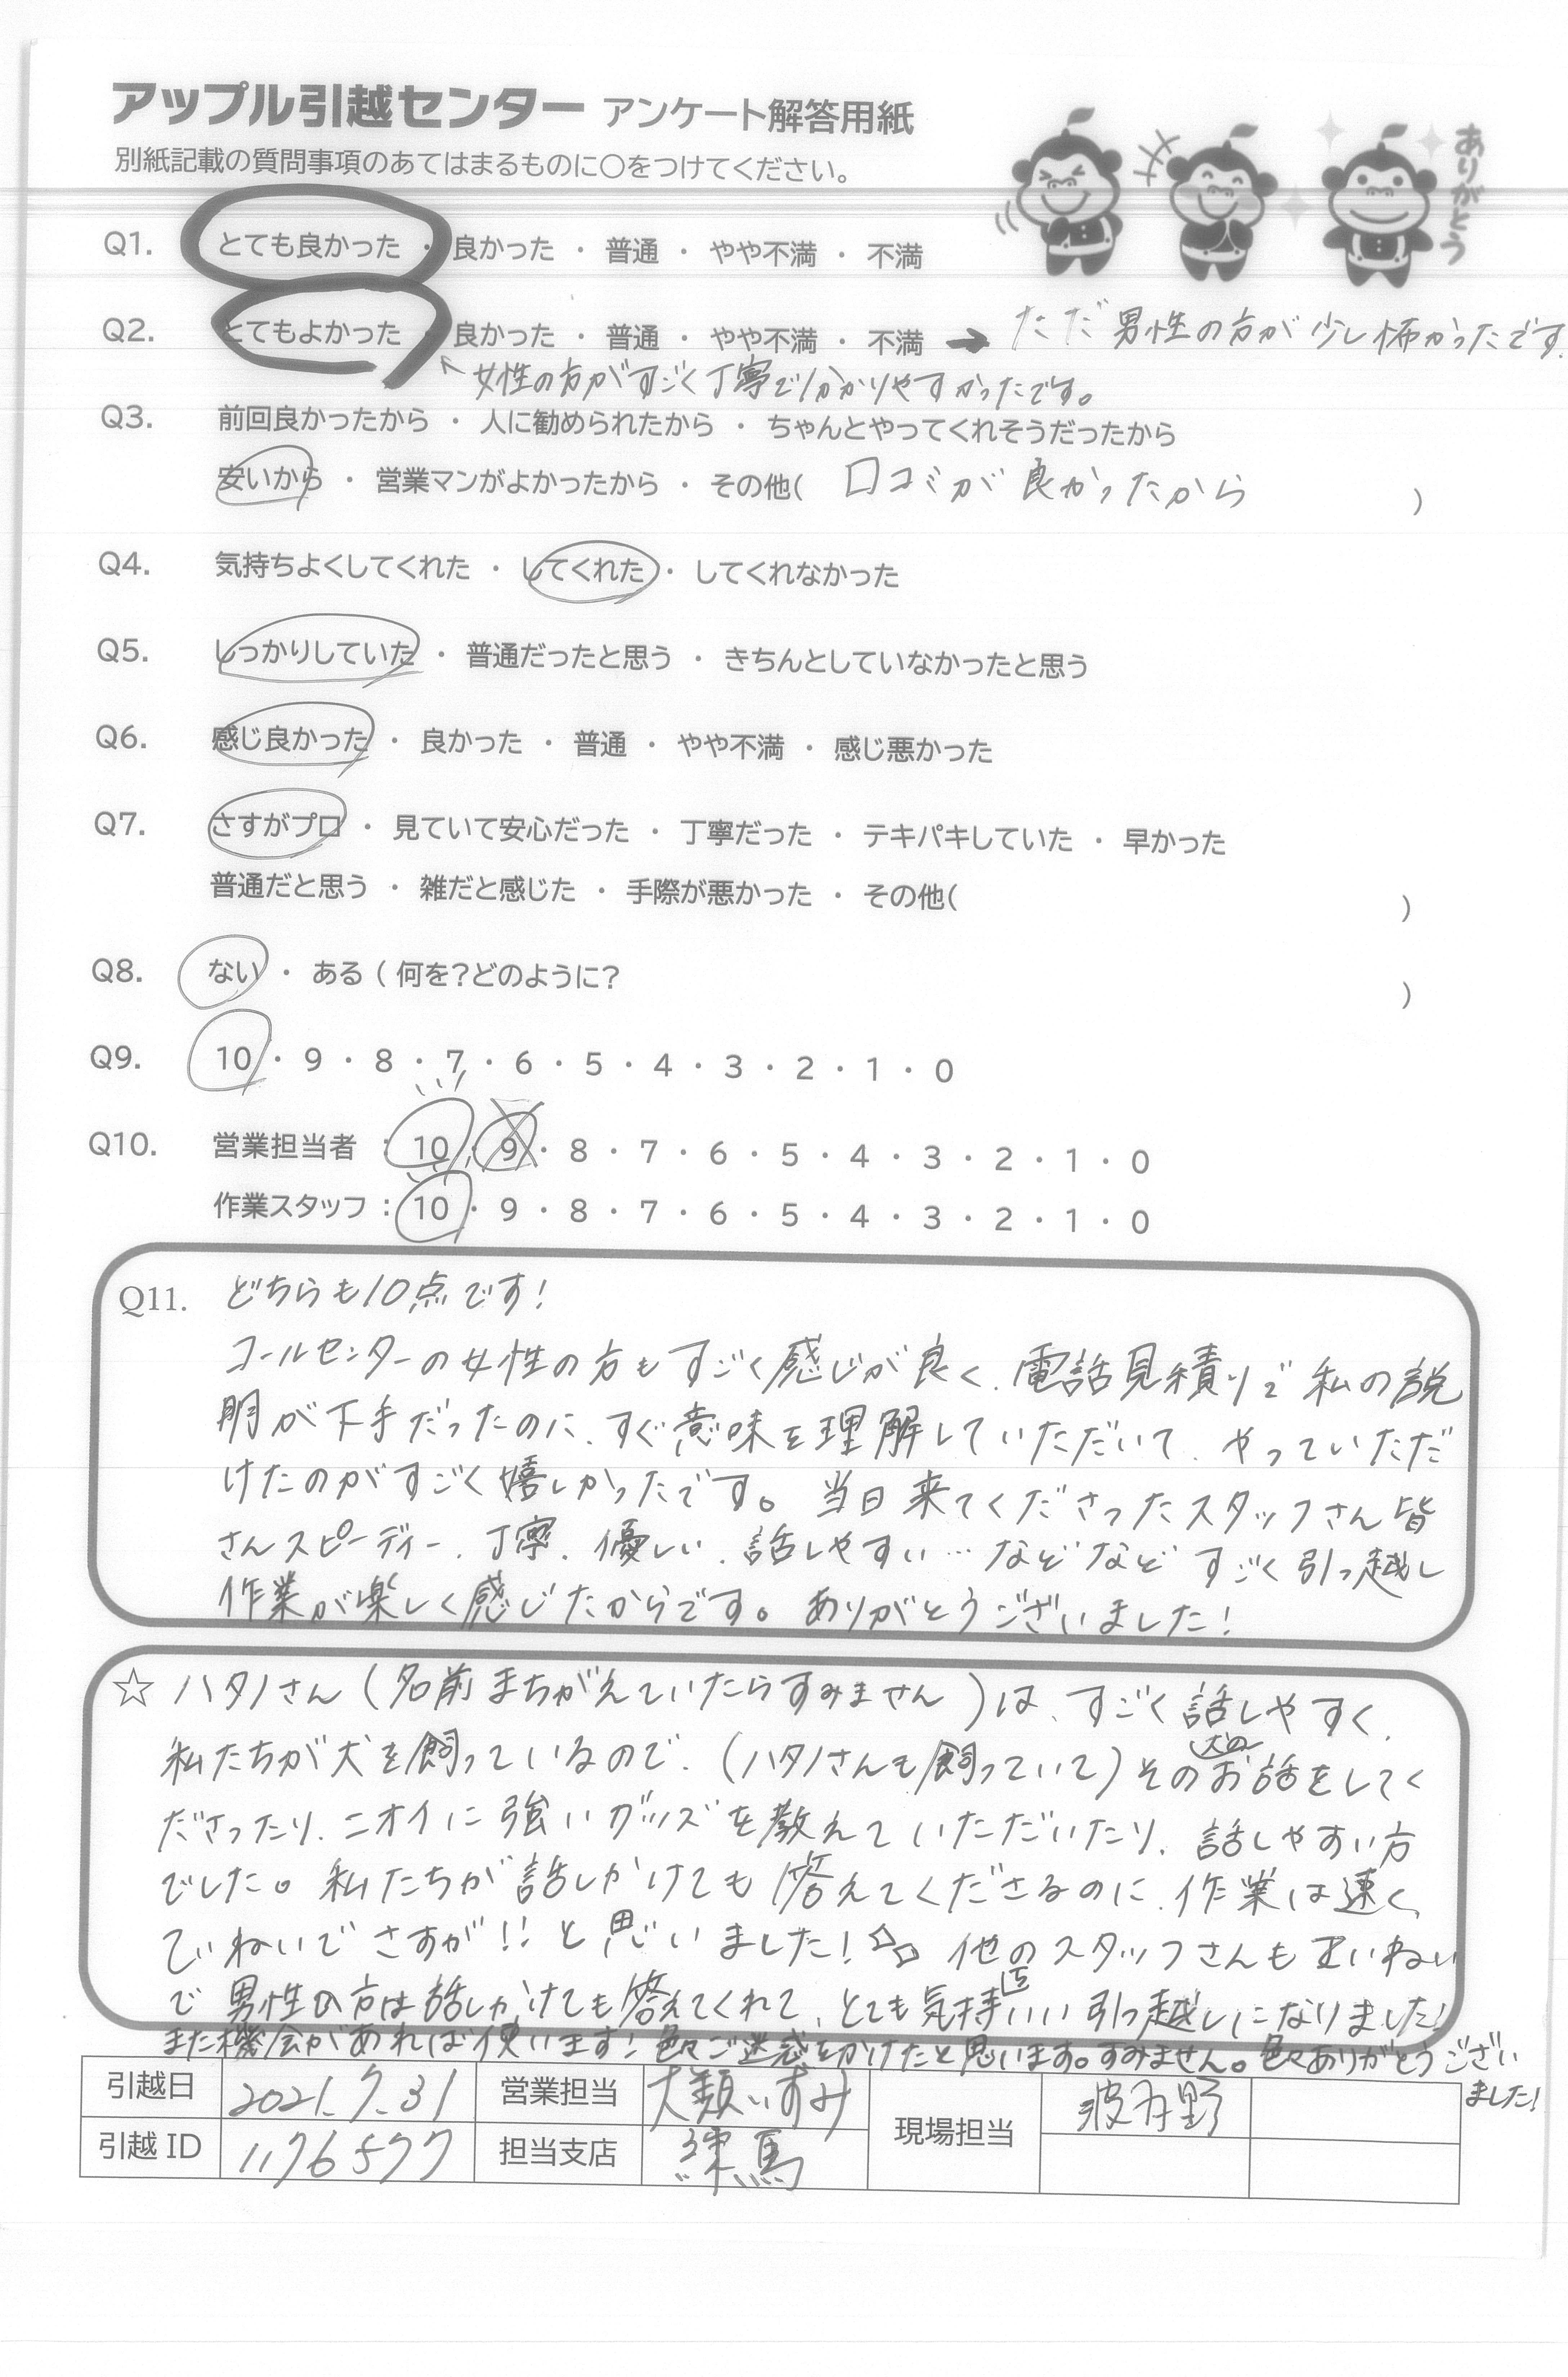 アップル引越センター アンケート解答用紙
別紙記載の質問事項のあてはまるものに○をつけてください。
ありがとう
Q1. とても良かった ・ 良かった ・ 普通 ・ やや不満 ・ 不満
Q2. とてもよかった ・ 良かった ・ 普通 ・ やや不満 ・ 不満 → ただ男性の方が少し怖かったです。
↖女性の方がすごく丁寧で分かりやすかったです。
Q3. 前回良かったから ・ 人に勧められたから ・ ちゃんとやってくれそうだったから
安いから ・ 営業マンがよかったから ・ その他( 口コミが良かったから )
Q4. 気持ちよくしてくれた ・ してくれた ・ してくれなかった
Q5. しっかりしていた ・ 普通だったと思う ・ きちんとしていなかったと思う
Q6. 感じ良かった ・ 良かった ・ 普通 ・ やや不満 ・ 感じ悪かった
Q7. さすがプロ ・ 見ていて安心だった ・ 丁寧だった ・ テキパキしていた ・ 早かった
普通だと思う ・ 雑だと感じた ・ 手際が悪かった ・ その他( )
Q8. ない ・ ある ( 何を?どのように? )
Q9. 10 ・ 9 ・ 8 ・ 7 ・ 6 ・ 5 ・ 4 ・ 3 ・ 2 ・ 1 ・ 0
Q10. 営業担当者 : 10 ・ 9 ・ 8 ・ 7 ・ 6 ・ 5 ・ 4 ・ 3 ・ 2 ・ 1 ・ 0
作業スタッフ : 10 ・ 9 ・ 8 ・ 7 ・ 6 ・ 5 ・ 4 ・ 3 ・ 2 ・ 1 ・ 0
Q11. どちらも10点です!
コールセンターの女性の方もすごく感じが良く、電話見積りで私の説
明が下手だったのに、すぐ意味を理解していただいて、やっていただ
けたのがすごく嬉しかったです。当日来てくださったスタッフさん皆
さんスピーディー、丁寧、優しい、話しやすい…などなどすごく引っ越し
作業が楽しく感じたからです。ありがとうございました!
☆ ハタノさん(名前まちがえていたらすみません)は、すごく話しやすく、
私たちが犬を飼っているので、(ハタノさんも飼っていて)その犬のお話をしてく
ださったり、ニオイに強いグッズを教えていただいたり、話しやすい方
でした。私たちが話しかけても答えてくださるのに、作業は速く、
ていねいでさすが!!と思いました!☆☆ 他のスタッフさんもていねい
で男性の方は話しかけても答えてくれて、とても気持ちいい引っ越しになりました!
また機会があれば使います!色々ご迷惑をかけたと思います。すみません。色々ありがとうござい
ました!
引越日 2021.7.31 営業担当 大類いずみ 現場担当 波多野
引越ID 1176577 担当支店 練馬